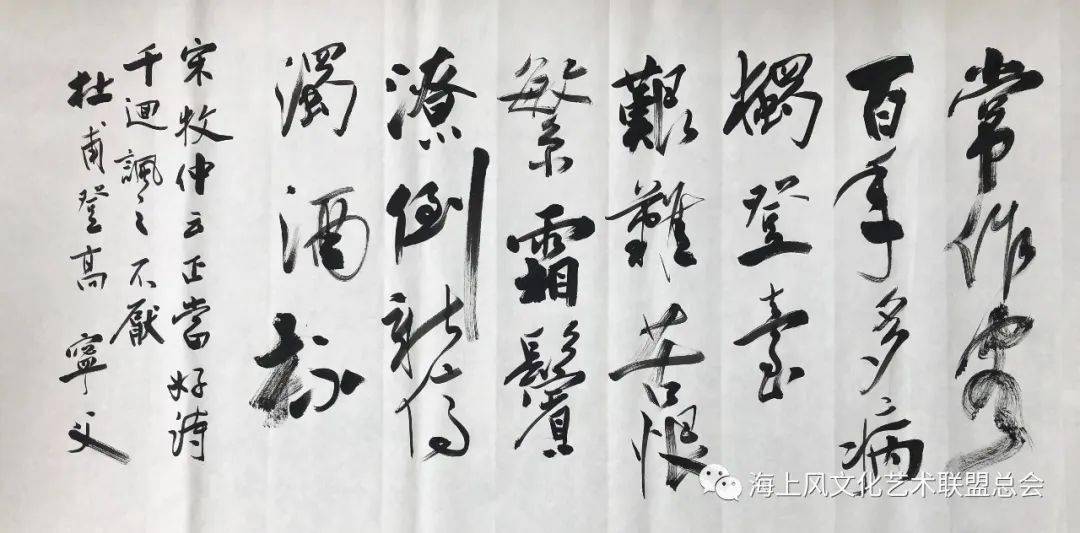 常作客
百年多病
獨登臺
艱難苦恨
繁霜鬢
潦倒新停
濁酒杯
宋牧仲云正當好詩
千迴諷之不厭
杜甫登高 寧父
海上风文化艺术联盟总会